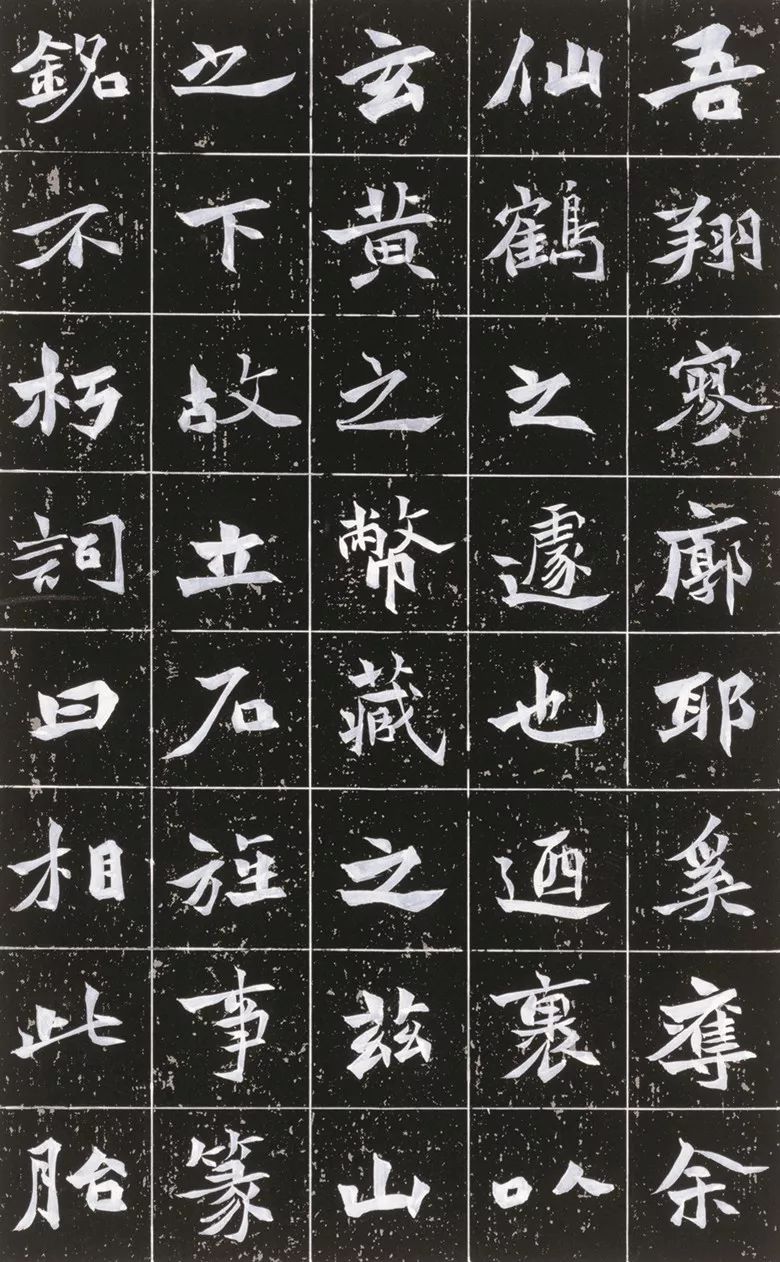 吾翔寥廓耶奚奪余
仙鶴之遽也迺裹以
玄黄之幣藏之兹山
之下故立石旌事篆
銘不朽詞曰相此胎